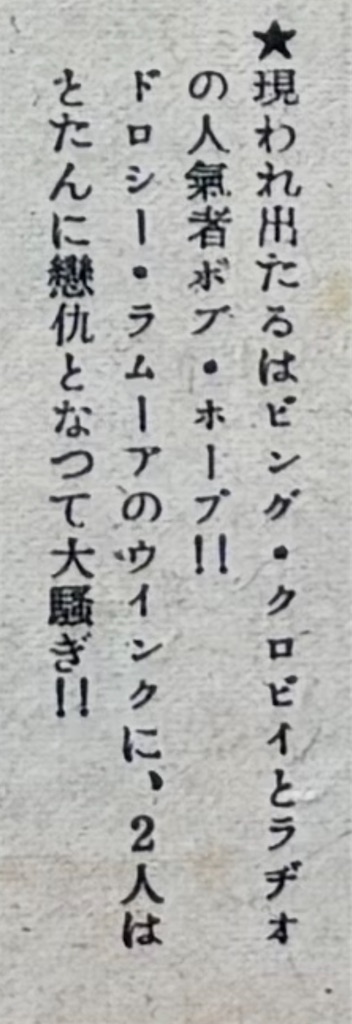 ★現われ出たるはビング・クロビイとラヂオ
の人氣者ボブ・ホープ!!
ドロシー・ラムーアのウインクに、2人は
とたんに戀仇となつて大騷ぎ!!